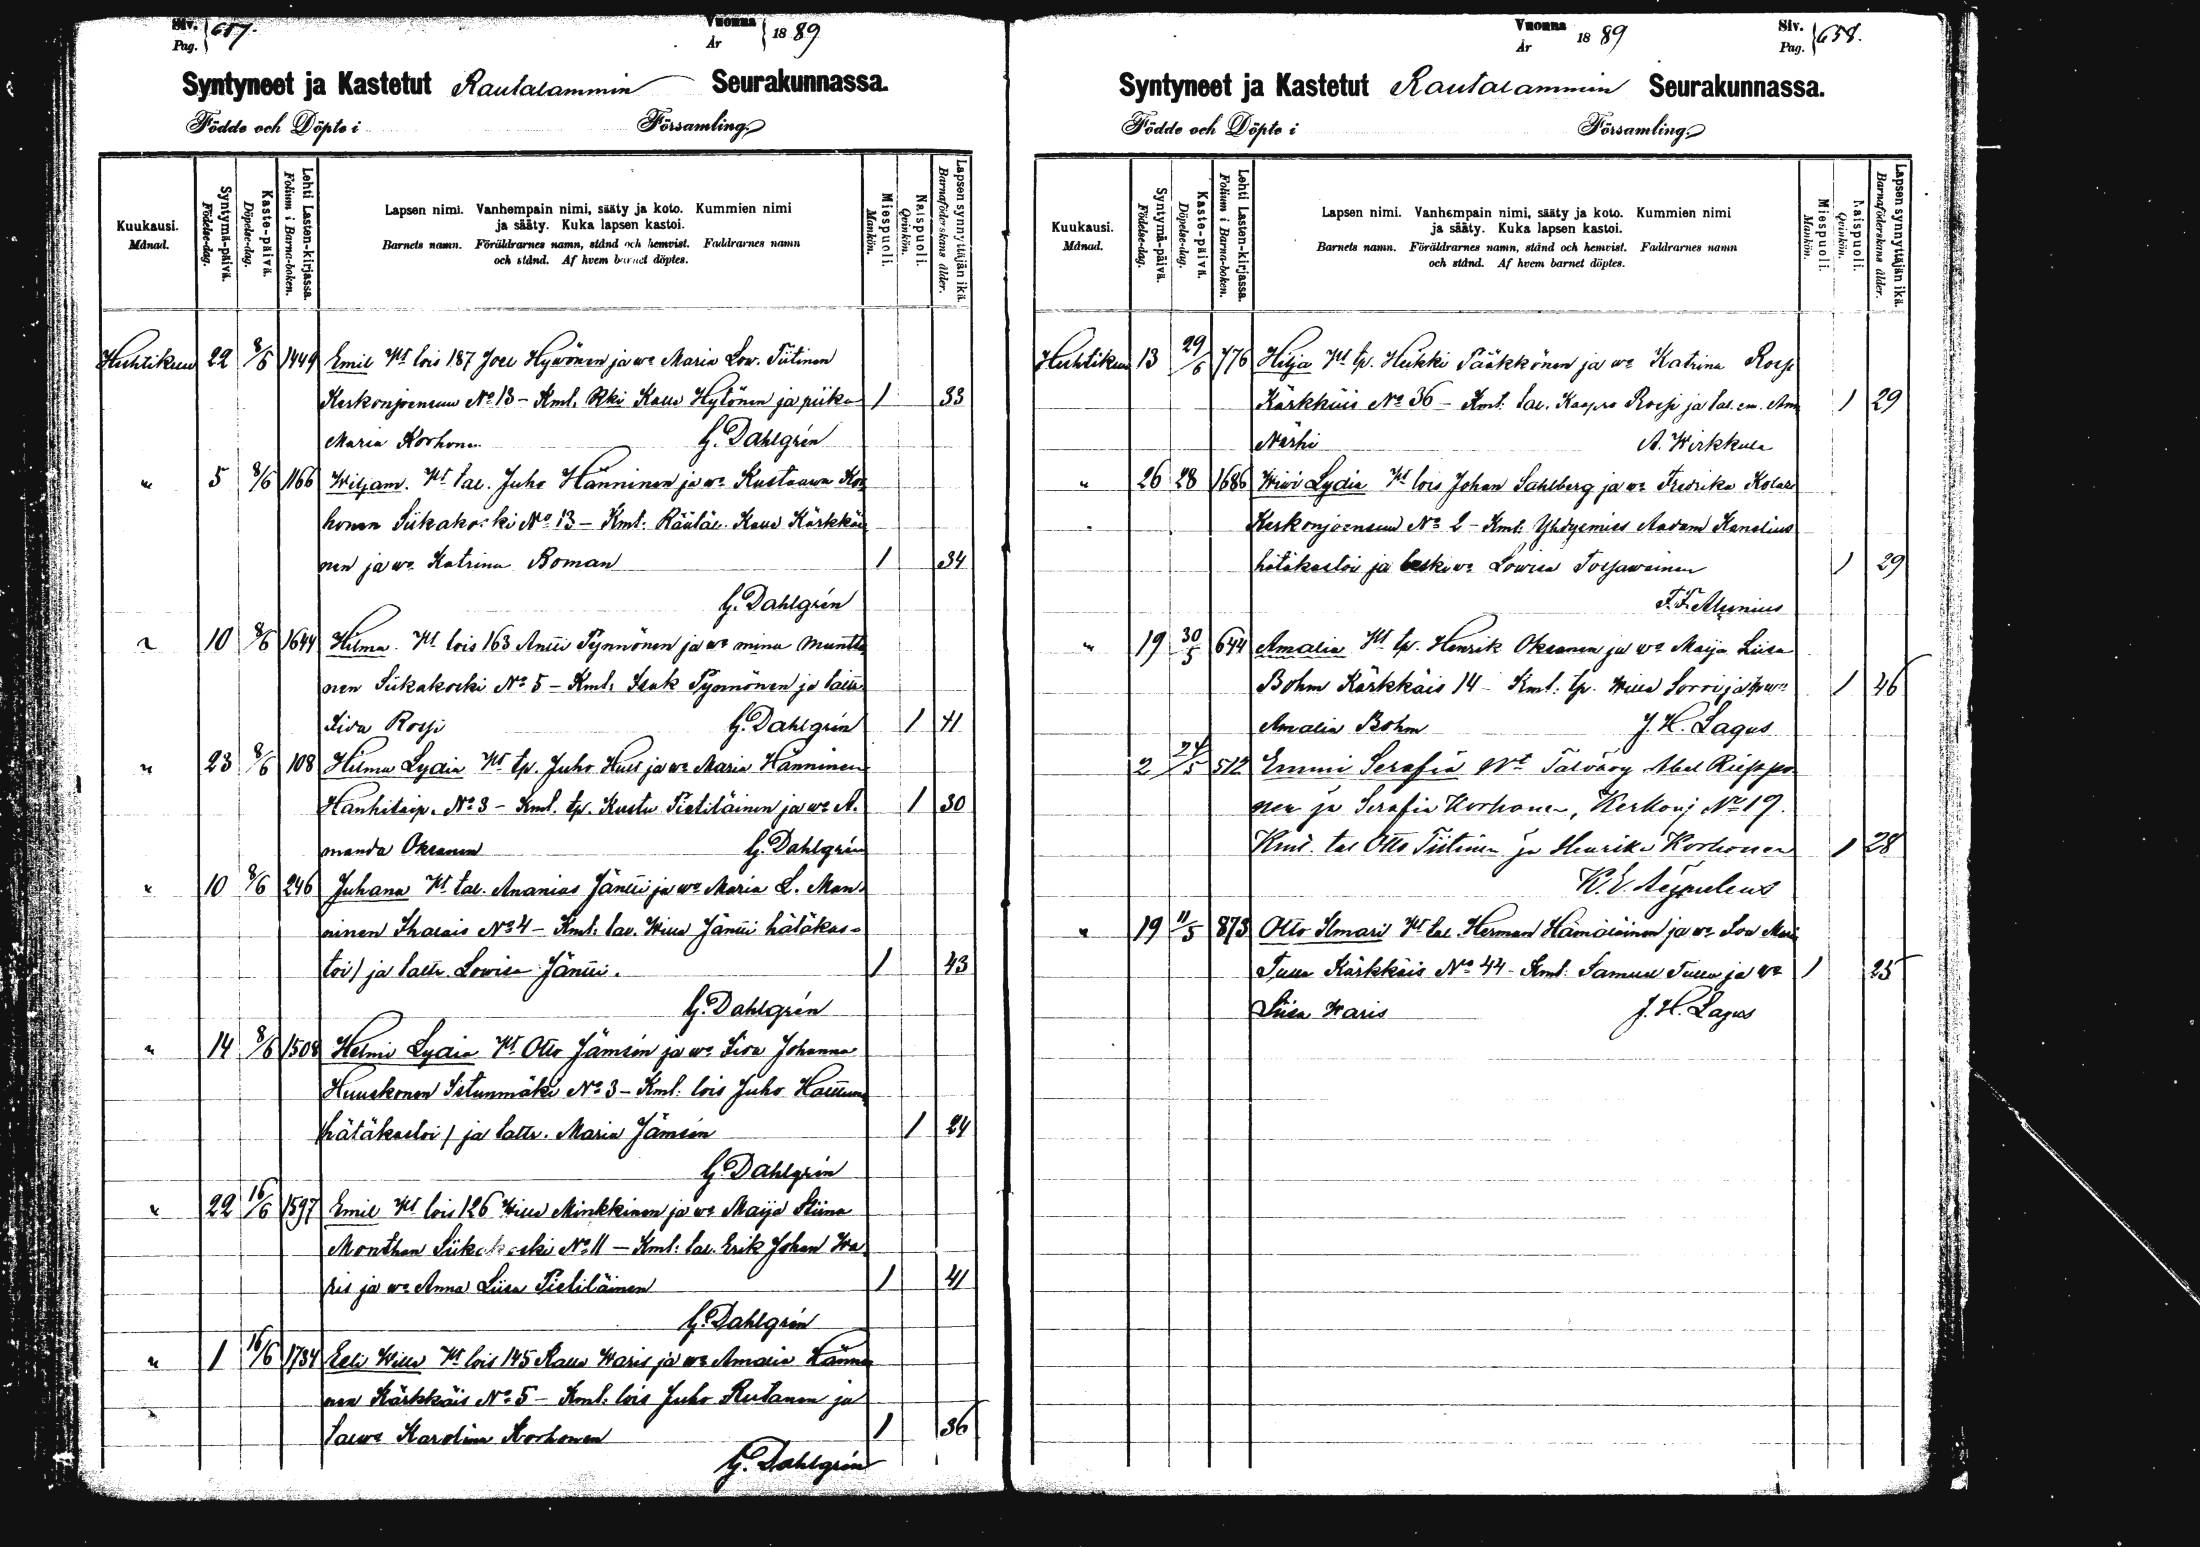 Siv. Pag. 657. Vuonna År 1889
Syntyneet ja Kastetut Rautalammin Seurakunnassa.
Födde och Döpte i Församling.
Kuukausi. Månad.
Syntymä-päivä. Födelse-dag.
Kaste-päivä. Döpelse-dag.
Lehti Lasten-kirjassa. Folium i Barna-boken.
Lapsen nimi. Vanhempain nimi, sääty ja koto. Kummien nimi
ja sääty. Kuka lapsen kastoi.
Barnets namn. Föräldrarnes namn, stånd och hemvist. Faddrarnes namn
och stånd. Af hvem barnet döptes.
Miespuoli. Mankön.
Naispuoli. Qvinkön.
Lapsen synnyttäjän ikä. Barnaföderskans ålder.
Huhtikuu 22 8/6 1449 Emil Wt lois 187 Joel Hywönen ja wo Maria Low. Tiitinen
Kerkonjoensuu No 13 – Kml. Rki Kalle Hytönen ja piika 1 33
Maria Korhonen G. Dahlgrén
" 5 8/6 1166 Wiljam. Wt tal. Juho Hänninen ja wo Kustaawa Kor
honen Siikakoski No 13 – Kml: Räätäl. Kalle Kärkkäi
nen ja wo Katrina Boman 1 34
G. Dahlgrén
" 10 8/6 1644 Hilma. Wt lois 163 Antti Pynnönen ja wo Mina
nen Siikakoski No 5 – Kml: Isak Pynnönen ja
Liva Rossi G. Dahlgrén 1 41
" 23 8/6 108 Hilma Lydia Wt tp. Juho Huss ja wo Maria Hänninen
Hanhitaip. No 3 – Kml. tp. Kustu Pietiläinen ja wo A.
manda Oksanen G. Dahlgrén 1 30
" 10 8/6 246 Juhana Wt tal. Ananias Jäntti ja wo Maria L. Man
ninen No 4 – Kml: tal. Wille Jäntti hätäkas-
toi) ja Lowisa Jäntti. 1 43
G. Dahlgrén
" 14 8/6 1508 Helmi Lydia Wt Otto Jämsén ja wo Liva Johanna
Huuskonen Istunmäki No 3 – Kml: lois Juho
hätäkastoi) ja Maria Jämsén 1 24
G. Dahlgrén
" 22 16/6 1597 Emil Wt lois 126 Wille Minkkinen ja wo Maija Stiina
Monthan Siikakoski No 11 – Kml: tal. Erik Johan Wa
ris ja wo Anna Liisa Pietiläinen 1 41
G. Dahlgrén
" 1 16/6 1734 Eeli Wille Wt lois 145 Kalle Waris ja wo Amalia Hänni
nen Kärkkäis No 5 – Kml: lois Juho Rutanen ja
Karolina Korhonen 1 36
G. Dahlgrén
Vuonna År 1889 Siv. Pag. 658.
Syntyneet ja Kastetut Rautalammin Seurakunnassa.
Födde och Döpte i Församling.
Kuukausi. Månad.
Syntymä-päivä. Födelse-dag.
Kaste-päivä. Döpelse-dag.
Lehti Lasten-kirjassa. Folium i Barna-boken.
Lapsen nimi. Vanhempain nimi, sääty ja koto. Kummien nimi
ja sääty. Kuka lapsen kastoi.
Barnets namn. Föräldrarnes namn, stånd och hemvist. Faddrarnes namn
och stånd. Af hvem barnet döptes.
Miespuoli. Mankön.
Naispuoli. Qvinkön.
Lapsen synnyttäjän ikä. Barnaföderskans ålder.
Huhtikuu 13 29/6 776 Hilja Wt tp. Heikki Pääkkönen ja wo Katrina Rossi
Kärkkäis No 36 – Kml: tal. Kaapro Rossi ja tal. em. Anna
Närhi A. Wirkkula 1 29
" 26 28 1686 Wiwi Lydia Wt lois Johan Sahlberg ja wo Fredrika Kolari
Kerkonjoensuu No 2 – Kml: Yhdysmies Aadam Kanelius
hätäkastoi ja leski wo Lowisa Tossawainen 1 29
F. F. Alenius
" 19 30/5 644 Amalia Wt tp. Henrik Oksanen ja wo Maija Liisa
Bohm Kärkkäis 14 – Kml: tp. Wille Sorri ja tp wo 1 46
Amalia Bohm J. H. Lagus
2 24/5 512 Emmi Serafia Wt Talvävy Abel Rieppo
nen ja Serafia Korhonen, Kerkonj No 19.
Kml. tal Otto Tiitinen ja Henrika Korhonen 1 28
K. E.
" 19 11/5 873 Otto Ilmari Wt tal. Herman Hämäläinen ja wo Eva Mari
Tulla Kärkkäis No 44 – Kml: Samuel Tulla ja wo 1 25
Liisa Waris J. H. Lagus